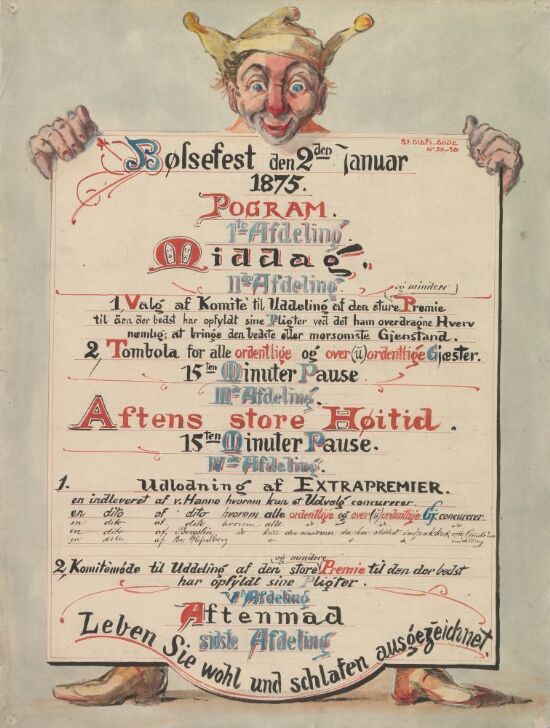 St. Olafs-Gade
No 28-30
Bølsefest den 2den Januar
1875.
POGRAM.
1ste Afdeling.
Middag!
IIde Afdeling.
(og mindere)
1, Valg af Komite til Uddeling af den store Premie
til den der bedst har opfyldt sine Pligter ved det ham overdragne Hverv
nemlig; at bringe den bedste eller morsomste Gjenstand.
2, Tombola for alle ordentlige og over(ü)ordentlige Gjæster.
15ten Minuter Pause.
IIIde Afdeling.
Aftens store Høitid.
15ten Minuter Pause.
IVde Afdeling.
1. Udlodning af EXTRAPREMIER.
en indleveret af v. Hanno hvorom kun et Udvalg concurerer.
en dito af dito hvorom alle ordentlige og over(ü)ordentlige Gj. concurerer
en dito af dito hvorom alle do do do
en dito af
en dito af
og mindere
2, Komitemøde til Uddeling af den store Premie til den der bedst
har opfyldt sine Pligter.
Vte Afdeling
Aftenmad
sidste Afdeling
Leben Sie wohl und schlafen ausgezeichnet.